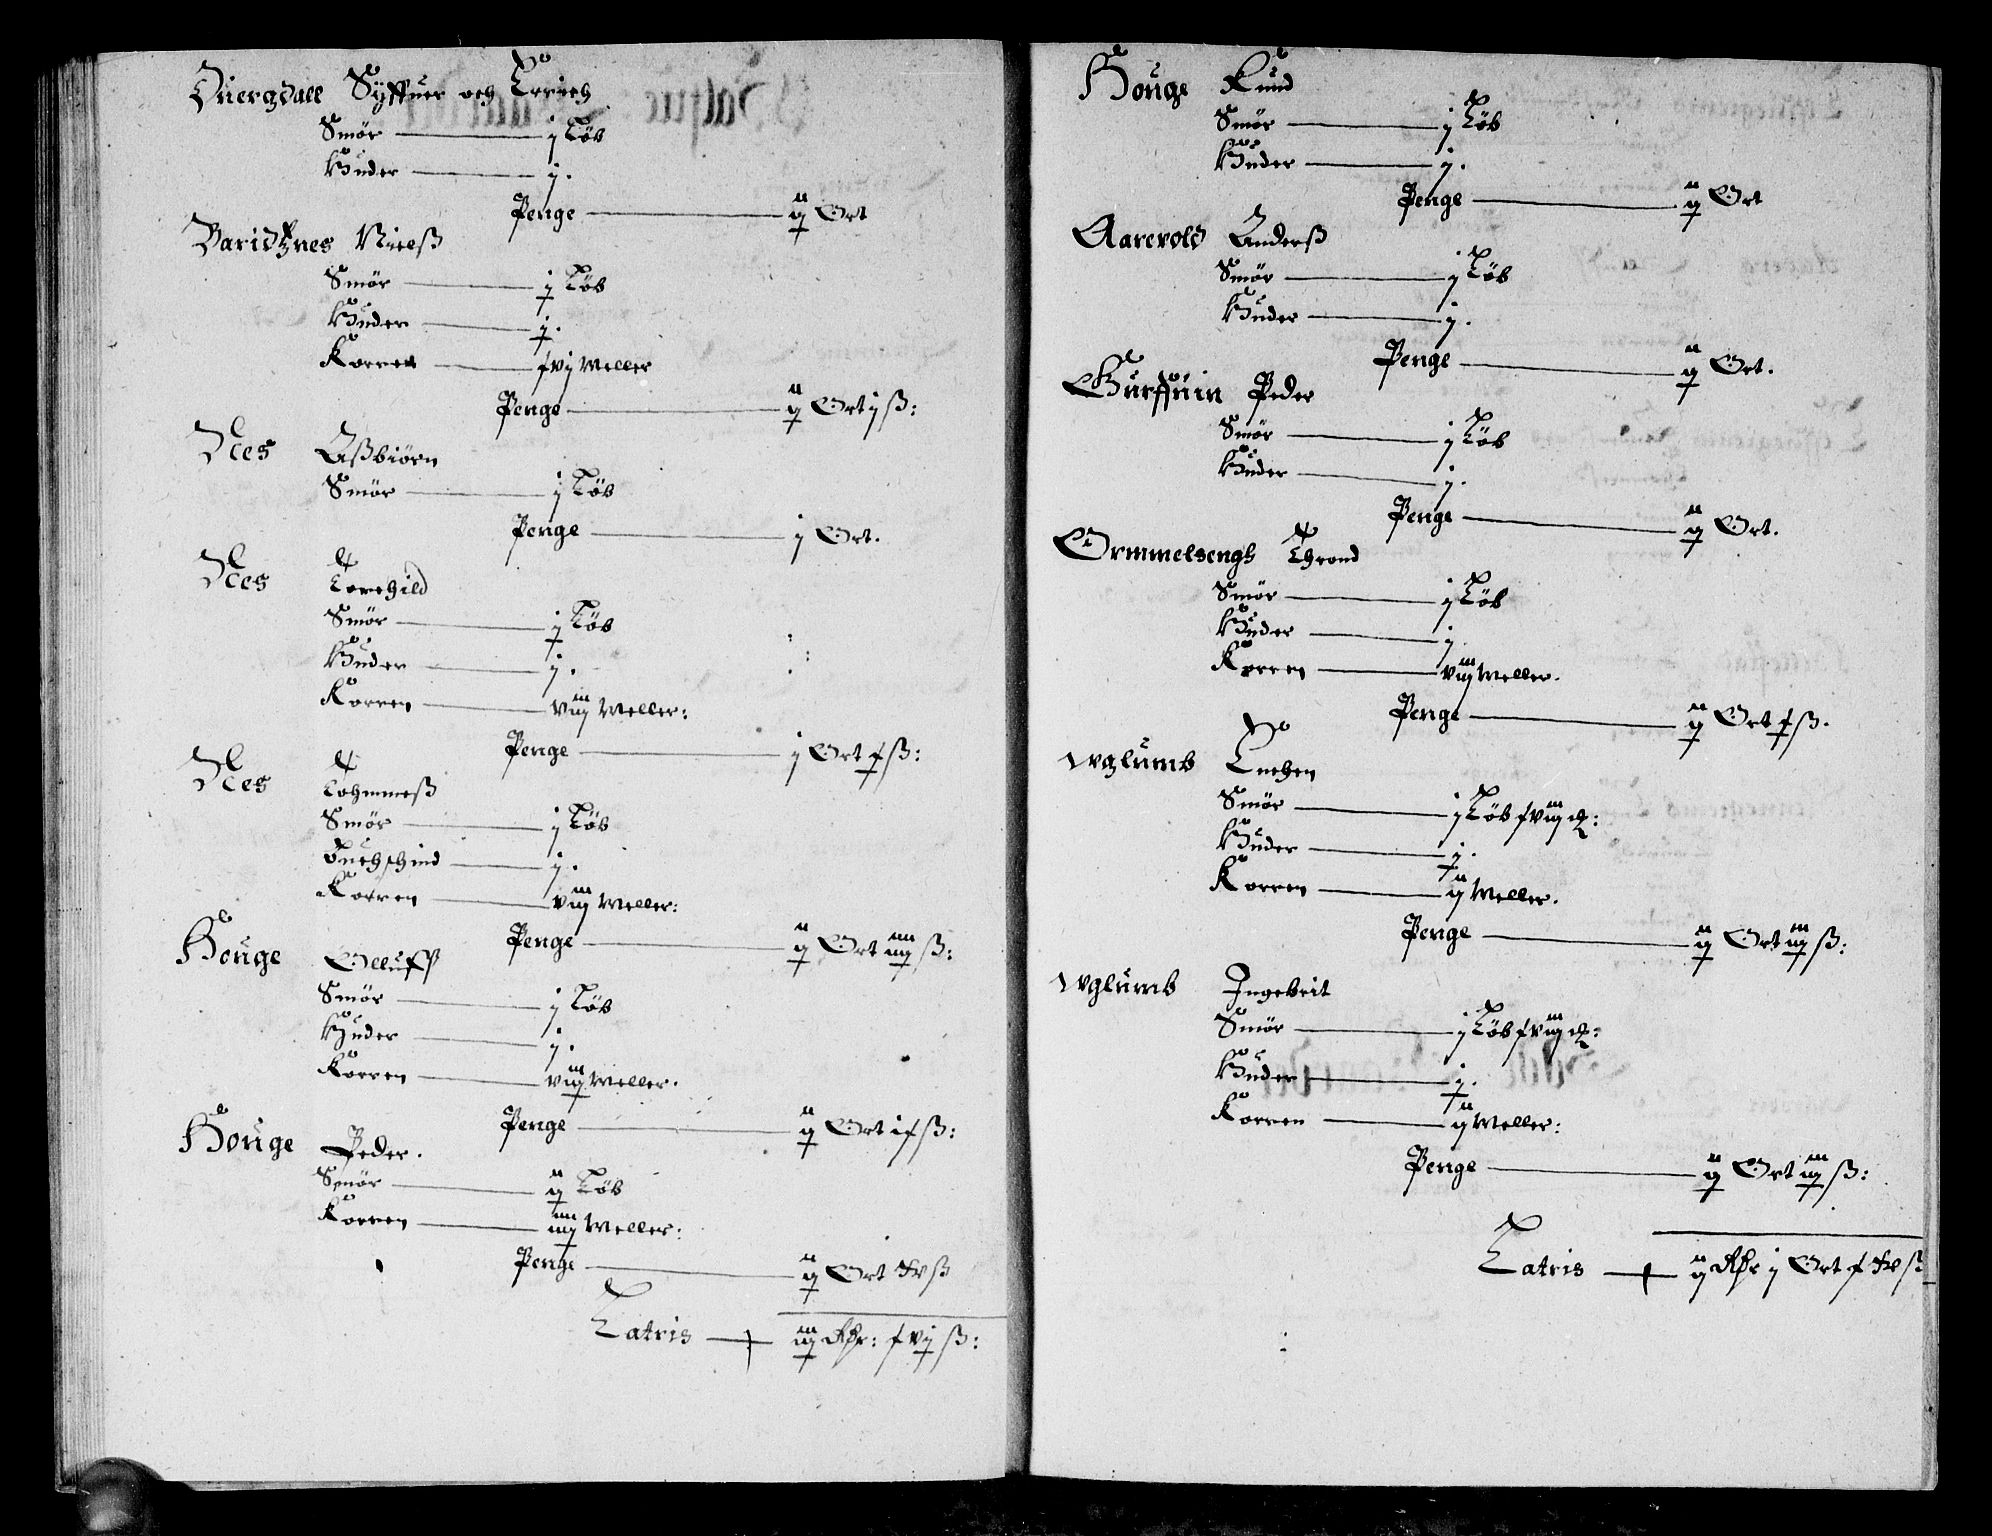 Øuergdall Syffuer och Errich
Smör j Löb
Huder j.
Penge ij Ort
Baridsnes Nielß
Smör j Löb
Huder j.
Korren xvj Meller
Penge ij Ort j ß:
Nes Aßbiörn
Smör j Löb
Penge j Ort.
Nes Torchild
Smör j Löb
Huder j.
Korren viij Meller:
Penge j Ort x ß:
Nes Tohmmeß
Smör j Löb
Buchschind j.
Korren viij Meller:
Penge ij Ort iiij ß:
Houge Olluff
Smör j Löb
Huder j.
Korren viij Meller.
Penge ij Ort ix ß:
Houge Peder.
Smör ij Löb
Korren iiij Meller:
Penge ij Ort xv ß
Latris iij Rdr: xvj ß:
Houge Knud
Smör j Löb
Huder j.
Penge ij Ort
Aarevold Anderß
Smör j Löb
Huder j.
Penge ij Ort.
Gurffuin Peder
Smör j Löb
Huder j.
Penge ij Ort.
Ormmelsengh Thrond
Smör j Löb
Huder j
Korren viij Meller.
Penge ij Ort x ß.
Wglumb Enchen
Smör j Löb xviij
Huder j.
Korren ij Meller.
Penge ij Ort iij ß:
Wglumb Ingebrit
Smör j Löb xviij
Huder j.
Korren ij Meller:
Penge ij Ort iij ß:
Latris ij Rdr j Ort xxv ß